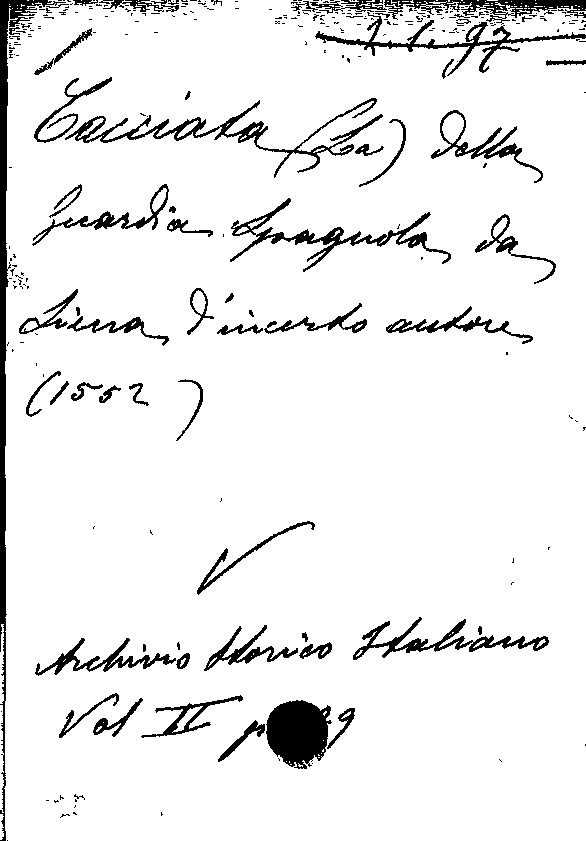 1.1.97
Cacciata (La) della
Guardia Spagnola da
Siena d'incerto autore
(1552)
V
Archivio Storico Italiano
Vol II p 9